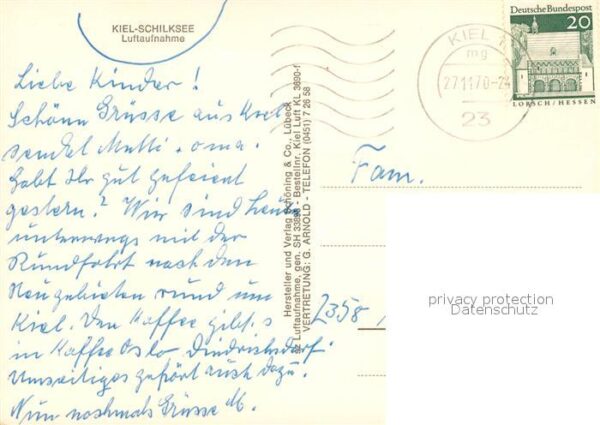 KIEL-SCHILKSEE
Luftaufnahme
Liebe Kinder!
Schöne Grüsse aus Kiel
sendet Mutti. Oma.
Habt Ihr gut gefeiert
gestern? Wir sind heute
unterwegs mit der
Rundfahrt nach den
Neugebieten rund um
Kiel. Den Kaffee gibt's
in Kaffee Oslo Diedrichsdorf.
Umseitiges gehört auch dazu.
Nun nochmals Grüsse M.
Hersteller und Verlag Schöning & Co., Lübeck
Luftaufnahme, gen. SH - Bestellnr. Kiel Luft KL 3890-f
VERTRETUNG: G. ARNOLD - TELEFON (0451) 7 26 58
Deutsche Bundespost
20
LORSCH/HESSEN
KIEL 1
mg
27.11.70-24
23
Fam.
2358
privacy protection
Datenschutz